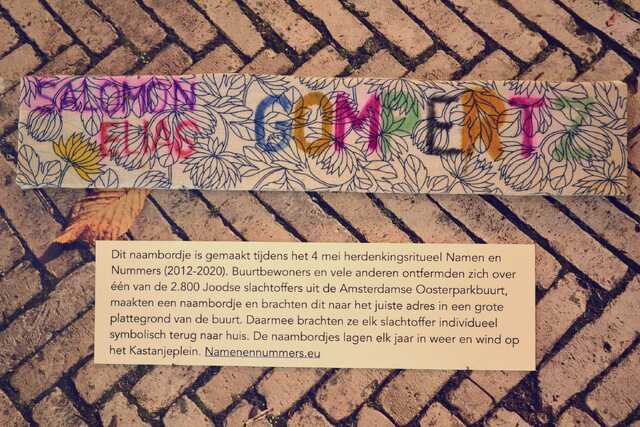 SALOMON
ELIAS
GOMPERTZ
Dit naambordje is gemaakt tijdens het 4 mei herdenkingsritueel Namen en
Nummers (2012-2020). Buurtbewoners en vele anderen ontfermden zich over
één van de 2.800 Joodse slachtoffers uit de Amsterdamse Oosterparkbuurt,
maakten een naambordje en brachten dit naar het juiste adres in een grote
plattegrond van de buurt. Daarmee brachten ze elk slachtoffer individueel
symbolisch terug naar huis. De naambordjes lagen elk jaar in weer en wind op
het Kastanjeplein. Namenennummers.eu